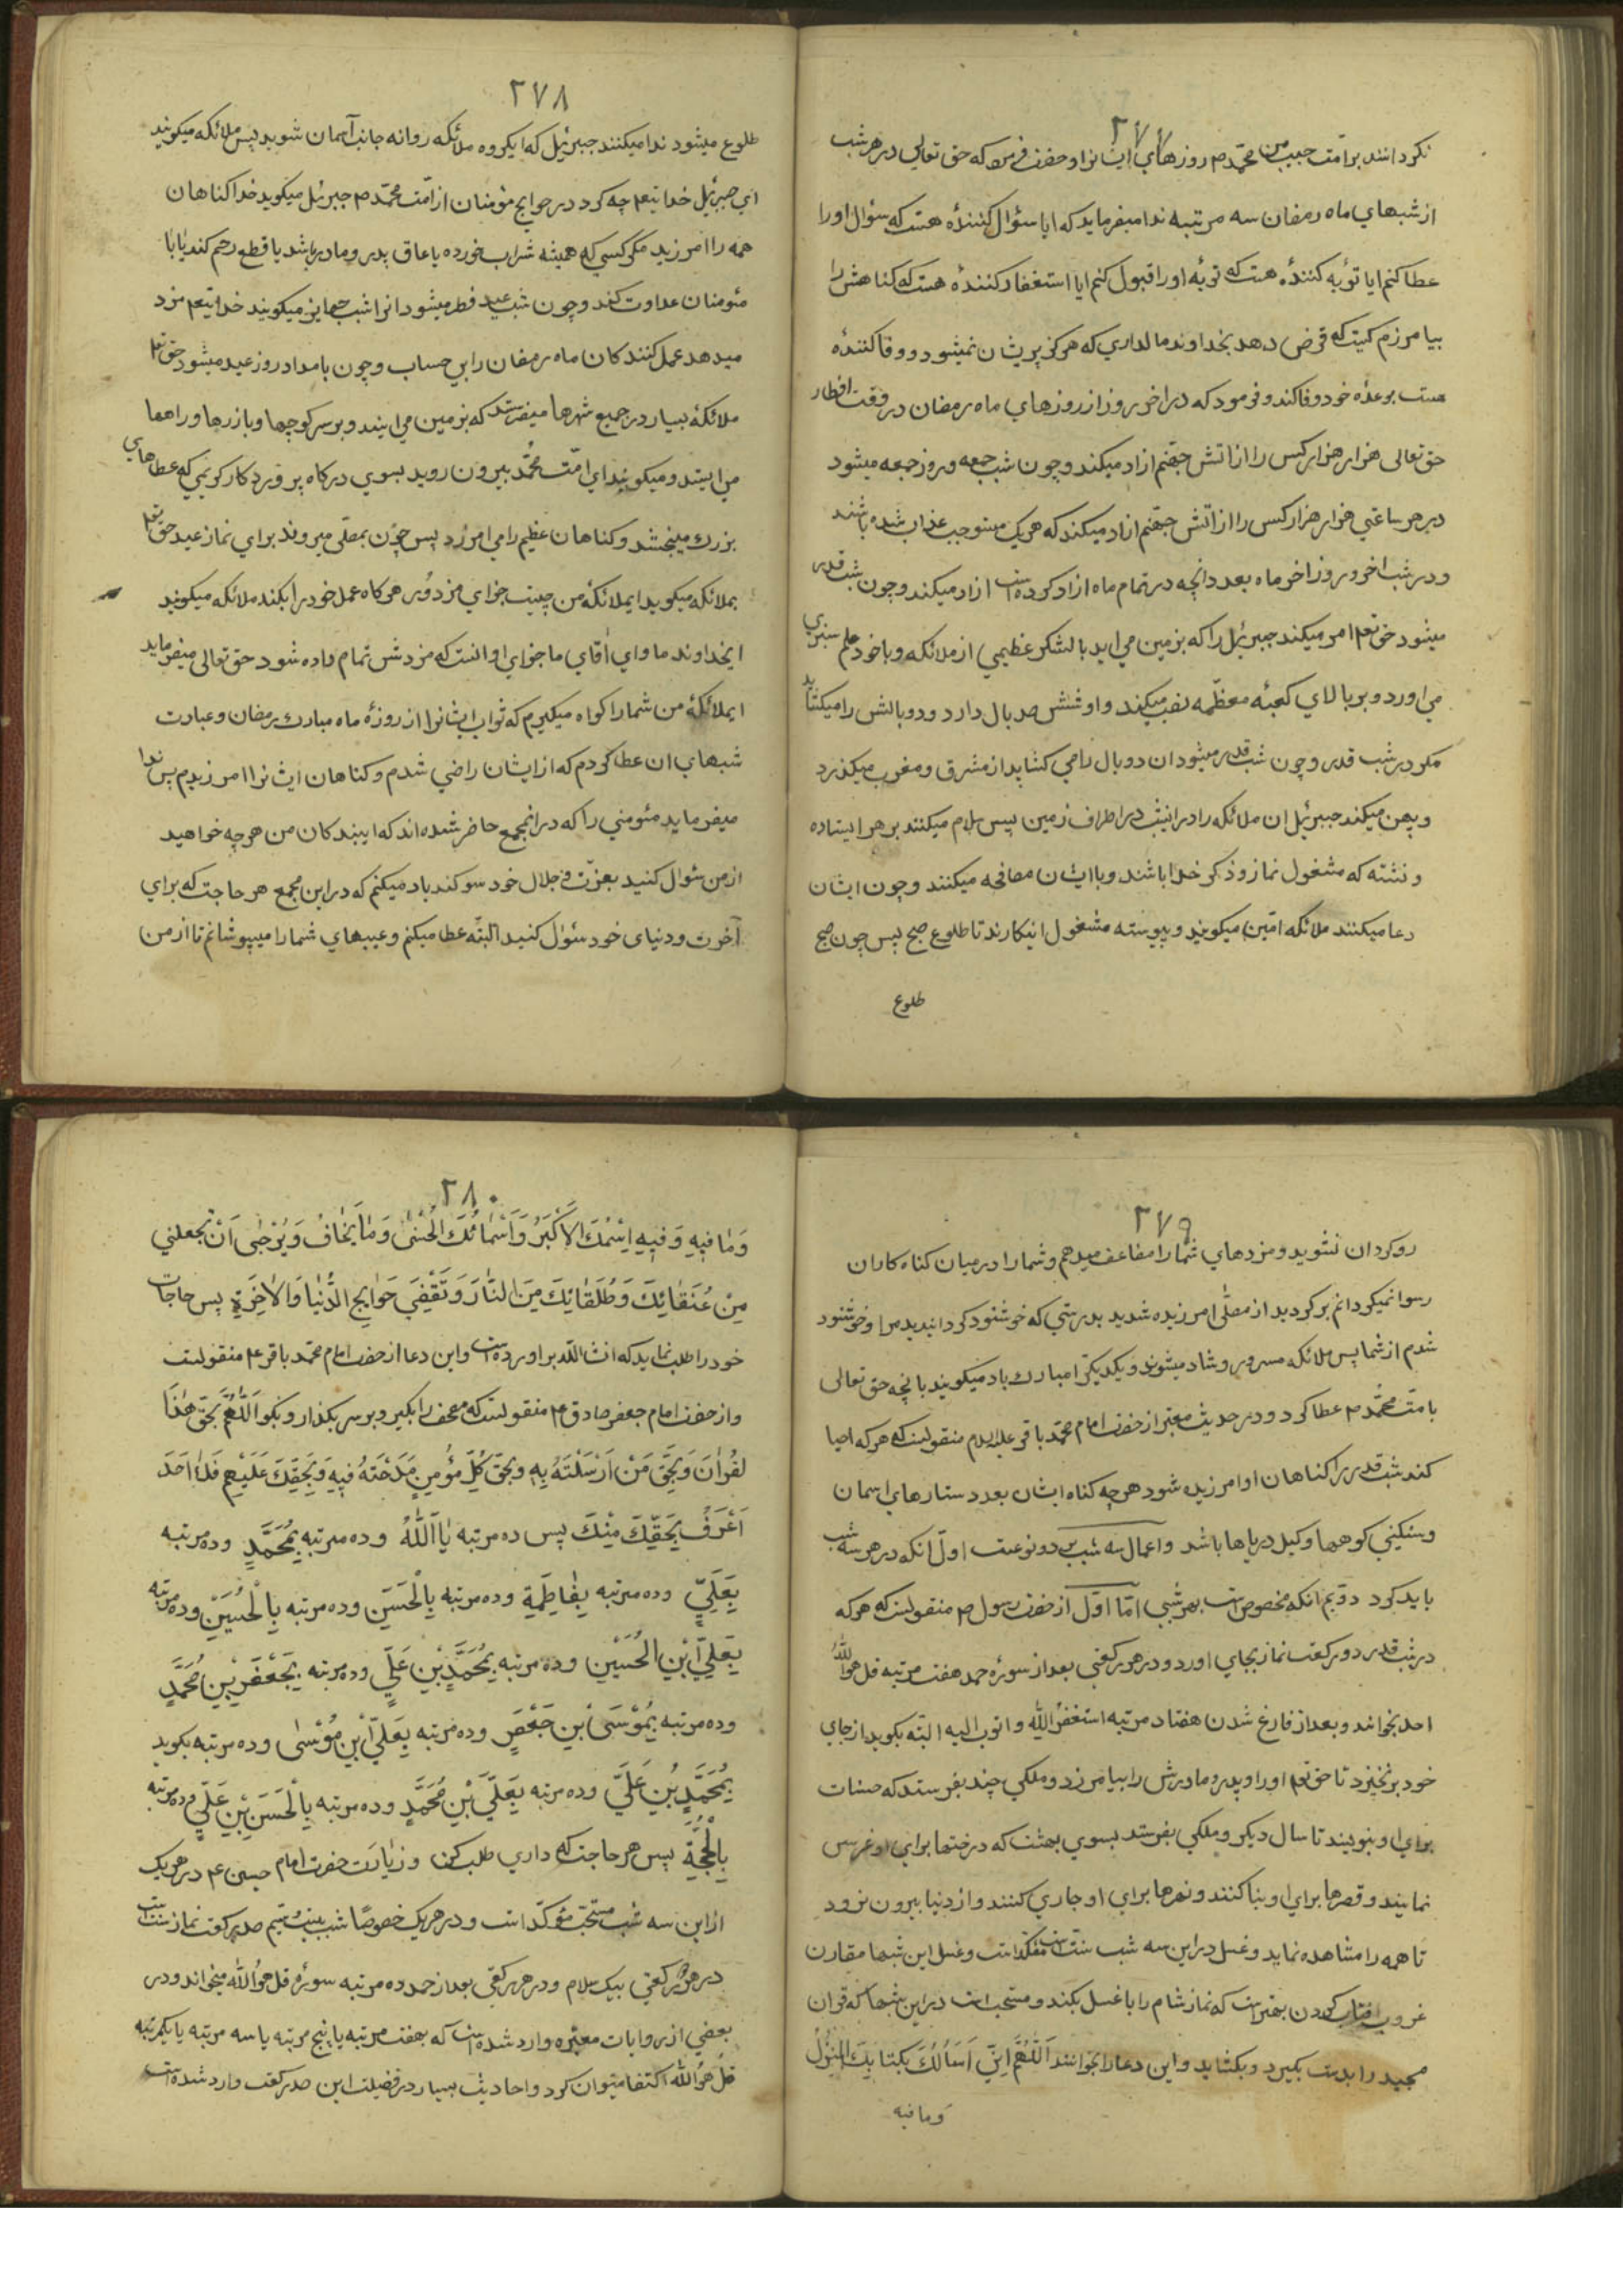 ۲۷۷
نکردانند برامت حبیب من محمد ص روزهای ایشانرا و حضرت فرمود که حق تعالی در هر شب
از شبهای ماه رمضان سه مرتبه ندا میفرماید که ایا سؤال کنندهٔ هست که سؤال اورا
عطا کنم ایا توبه کنندهٔ هست که توبهٔ اورا قبول کنم ایا استغفار کنندهٔ هست که کناهش را
بیامرزم کیست که قرض دهد بخداوند مالداری که هرکز پریشان نمیشود و وفا کنندهٔ
هست بوعدهٔ خود وفا کند و فرمود که در اخر روز از روزهای ماه رمضان در وقت افطار
حق تعالی هزار هزار کس را از اتش جهنم ازاد میکند و چون شب جمعه و روز جمعه میشود
در هر ساعتی هزار هزار کس را از اتش جهنم ازاد میکند که هریک مستوجب عذاب شده باشند
و در شب اخر و روز اخر ماه بعدد انچه در تمام ماه ازاد کرده است ازاد میکند و چون شب قدر
میشود حق تعم امر میکند جبرئیل را که بزمین می اید با لشکر عظیمی از ملائکه و با خود علم سبزی
می اورد و بر بالای کعبهٔ معظمه نصب میکند و او ششصد بال دارد و دو بالش را میکشاید
مکر در شب قدر و چون شب قدر میشود ان دو بال را می کشاید از مشرق و مغرب میکذرد
و پهن میکند جبرئیل ان ملائکه را در انشب در اطراف زمین پس سلام میکنند بر هر ایستاده
و نشسته که مشغول نماز و ذکر خدا باشند و با ایشان مصافحه میکنند و چون ایشان
دعا میکنند ملائکه امین میکویند و پیوسته مشغول اینکارند تا طلوع صبح پس چون صبح
طلوع
۲۷۸
طلوع میشود ندا میکنند جبرئیل که ایکروه ملائکه روانه جانب آسمان شوید پس ملائکه میکویند
ای جبرئیل خدایتعم چه کرد در حوایج مؤمنان از امت محمد ص جبرئیل میکوید خدا کناهان
همه را امرزید مکر کسی که همیشه شراب خورده یا عاق پدر و مادر باشد یا قطع رحم کند یا با
مئومنان عداوت کند و چون شب عید فطر میشود انرا شب جوایز میکویند خدایتعم مزد
میدهد عمل کنندکان ماه رمضان را بی حساب و چون بامداد روز عید میشود حق تعم
ملائکهٔ بسیار در جمیع شهرها میفرستد که بزمین می ایند و بر سر کوچها و بازرها و راهها
می ایستند و میکویند ای امت محمد بیرون روید بسوی درکاه پروردکار کریمی که عطاهای
بزرك میبخشد و کناهان عظیم را می امرزد پس چون بمصلی میروند برای نماز عید حق تعم
بملائکه میکوید ایملائکهٔ من چیست جزای مزدور هرکاه عمل خود را بکند ملائکه میکویند
ایخداوند ما و ای اقای ما جزای او انست که مزدش تمام داده شود حق تعالی میفرماید
ایملائکهٔ من شما را کواه میکیرم که ثواب ایشانرا از روزهٔ ماه مبارك رمضان و عبادت
شبهای ان عطا کردم که از ایشان راضی شدم و کناهان ایشانرا امرزیدم پس ندا
میفرماید مئومنی را که در انمجمع حاضر شده اند که ایبندکان من هرچه خواهید
از من سئوال کنید بعزت و جلال خود سوکند یاد میکنم که در این مجمع هر حاجت که برای
آخرت و دنیای خود سئوال کنید البته عطا میکنم و عیبهای شما را میپوشانم تا از من
۲۷۹
روکردان نشوید و مزدهای شما را مضاعف میدهم و شما را در میان کناه کاران
رسوا نمیکردانم برکردید از مصلی امرزیده شدید بدرستی که خوشنود کردانیدید مرا و خوشنود
شدم از شما پس ملائکه مسرور و شاد میشوند و یکدیکر را مبارك باد میکویند بانچه حق تعالی
بامت محمد ص عطا کرد و در حدیث معتبر از حضرت امام محمد باقر علیه السلام منقولست که هر که احیا
کند شب قدر را کناهان او امرزیده شود هرچه کناه ایشان بعدد ستارهای اسمان
و سنکینی کوهها و کیل دریاها باشد و اعمال سه شب بر دو نوعست اول انکه در هر سه شب
باید کرد دویم انکه مخصوص است بهر شبی اما اول از حضرت رسول ص منقولست که هر که
در شب قدر دو رکعت نماز بجای اورد و در هر رکعتی بعد از سورهٔ حمد هفت مرتبه قل هو الله
احد بخواند و بعد از فارغ شدن هفتاد مرتبه استغفر الله و اتوب الیه البته بکوید از جای
خود برنخیزد تا حق تعم او را و پدر و مادرش را بیامرزد و ملکی چند بفرستد که حسنات
برای او بنویسند تا سال دیکر و ملکی بفرستد بسوی بهشت که درختها برای او غرس
نمایند و قصرها برای او بنا کنند و نهرها برای او جاری کنند و از دنیا بیرون نرود
تا همه را مشاهده نماید و غسل در این سه شب سنت مؤکد است و غسل این شبها مقارن
غروب افتاب کردن بهتر است که نماز شام را با غسل بکند و مستحب است در این شبها که قران
مجید را بدست بکیرد و بکشاید و این دعا را بخوانند اَللّٰهُمَّ اِنّی اَسْاَلُكَ بِکِتابِكَ المُنْزَلِ
وما فیه
۲۸۰
وَمٰا فیهِ وَ فیهِ اِسْمُكَ الْاَکْبَرُ وَاَسْمٰائُكَ الْحُسْنٰی وَمٰا یُخٰافُ وَیُرْجٰی اَنْ تَجْعَلَنی
مِنْ عُتَقٰائِكَ وَطُلَقٰائِكَ مِنَ النّٰارِ وَتَقْضِیَ حَوٰایِجَ الدُّنْیٰا وَالْاٰخِرَةِ پس حاجات
خود را طلب نماید که انشاالله براورده است و این دعا از حضرت امام محمد باقر ع منقولست
و از حضرت امام جعفر صادق ع منقولست که مصحف را بکیر و بر سر بکذار و بکو اَللّٰهُمَّ بِحَقِّ هٰذَا
لقُرْاٰنِ وَبِحَقِّ مَنْ اَرْسَلْتَهُ بِهِ وبحَقِّ کُلِّ مؤْمِنٍ مَدَحْتَهُ فیهِ وَبِحَقِّكَ عَلَیْهِم فَلاٰ اَحَدَ
اَعْرَفُ بِحَقِّكَ مِنْكَ پس ده مرتبه یٰا اَللّٰهُ و ده مرتبه بِمُحَمَّدٍ و ده مرتبه
بِعَلِیٍّ و ده مرتبه بِفٰاطِمَةِ و ده مرتبه بِالْحَسَنِ و ده مرتبه بِالْحُسَیْنِ و ده مرتبه
بِعَلِیِّ ابْنِ الْحُسَیْنِ و ده مرتبه بِمُحَمَّدِ بْنِ عَلِیٍّ و ده مرتبه بِجَعْفَرِ بْنِ مُحَمَّدٍ
و ده مرتبه بِمُوْسَی ابْنِ جَعْفَرٍ و ده مرتبه بِعَلِیِّ ابْنِ مُوْسٰی و ده مرتبه بکوید
بِمُحَمَّدِ بْنِ عَلِیٍّ و ده مرتبه بِعَلِیِّ بْنِ مُحَمَّدٍ و ده مرتبه بِالْحَسَنِ بْنِ عَلِیٍّ و ده مرتبه
بِالْحُجَّةِ پس هر حاجت که داری طلب کن و زیارت حضرت امام حسین ع در هریك
از این سه شب مستحب مؤکد است و در هریك خصوصًا شب بیست و سیم صد رکعت نماز سنت است
در هر دو رکعتی بیک سلام و در هر رکعتی بعد از حمد ده مرتبه سورهٔ قل هو الله میخواند و در
بعضی از روایات معتبره وارد شده است که بهفت مرتبه یا پنج مرتبه یا سه مرتبه یا یکمرتبه
قل هو الله اکتفا میتوان کرد و احادیث بسیار در فضیلت این صد رکعت وارد شده است